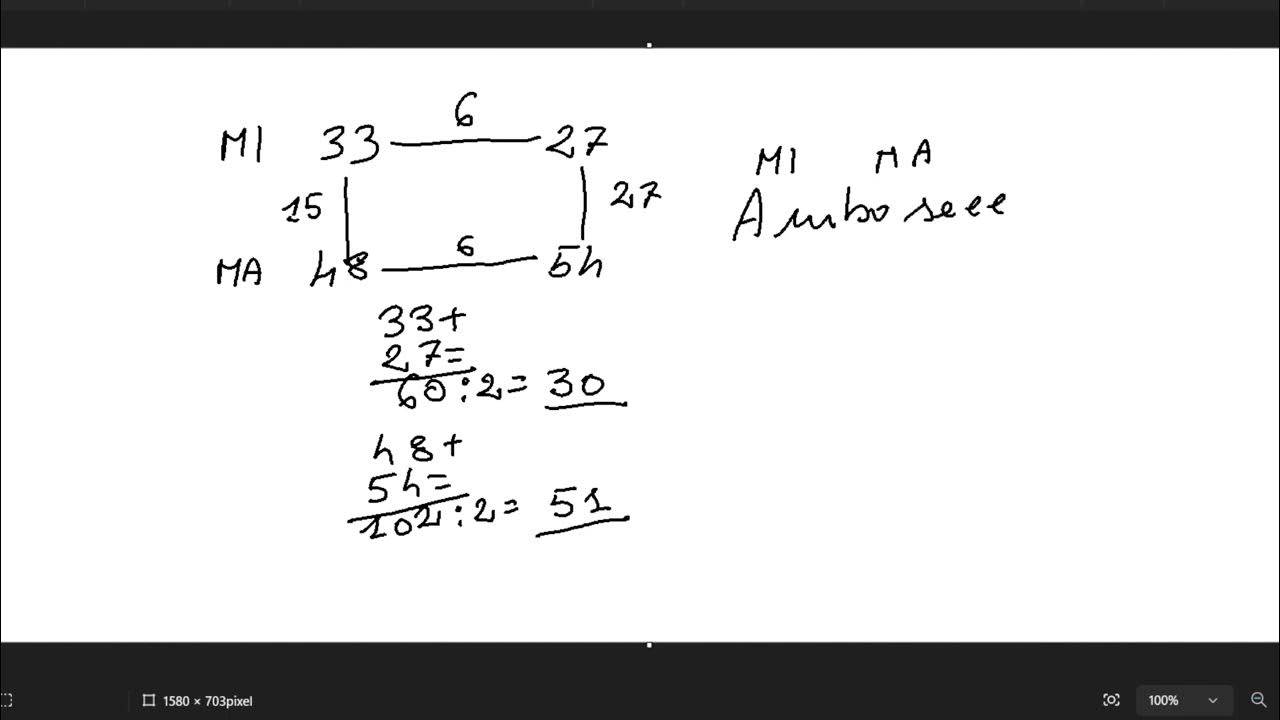 6
MI 33 27
MI MA
15 27
Ambo secc
6
MA 48 54
33+
27=
60:2=30
48+
54=
102:2=51
1580 × 703pixel
100%